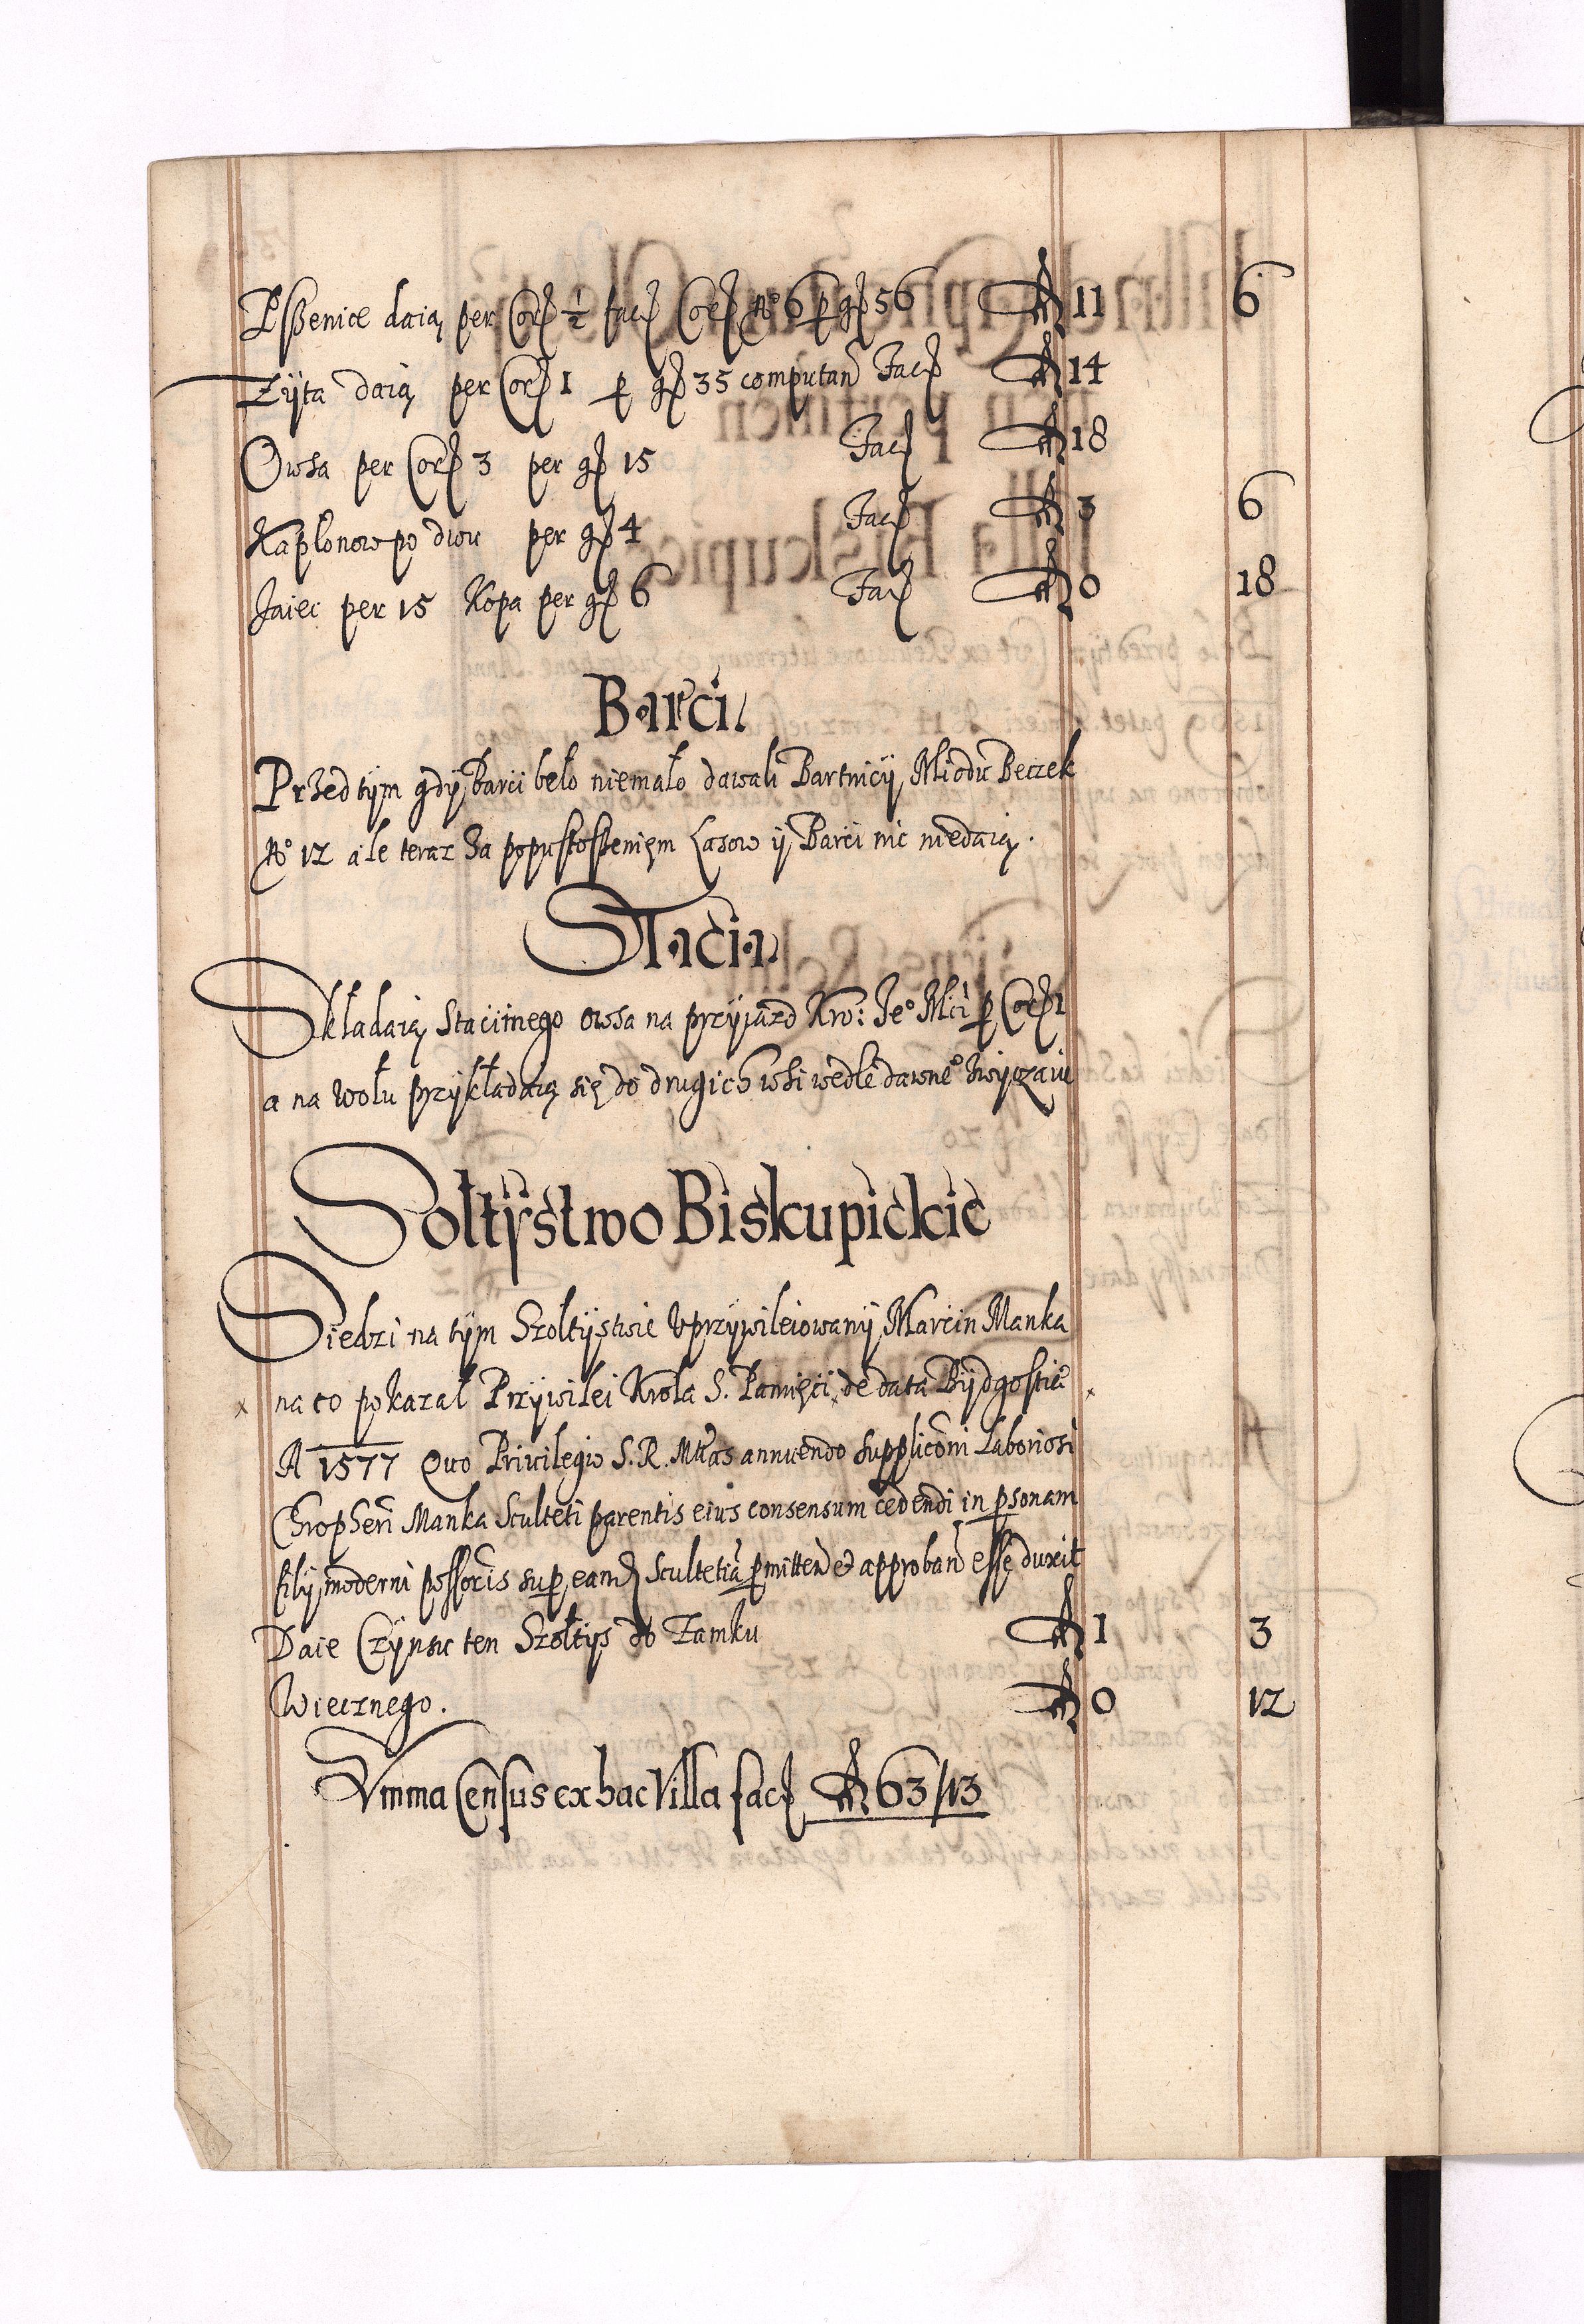 Pssenice daią per Cor ½ fac Cor No 6 p gr 56 fl 11 6
Zÿta daią per Cor 1 p gr 35 computan Fac fl 14
Owsa per Cor 3 per gr 15 Fac fl 18
Kapłonow po dwu per gr 4 Fac fl 3 6
Jaiec per 15 Kopa per gr 6 Fac fl 0 18
Barci
Przed tÿm gdÿ Barci beło niemało dawali Bartnicÿ Miodu Beczek
No 12 ale teraz za popustosseniem Lasow ÿ Barci nic niedaią.
Stacia
Składaią Staciinego owsa na przÿiazd Kro: Jeo Mci p Cor 1
a na wołu przÿkładaią się do drugich wsi wedle dawneo zwÿczaiu
Sołtÿstwo Biskupickie
Siedzi na tÿm Szołtÿstwie Vprzÿwileiowanÿ Marcin Manka
na co pokazał Przÿwilei Krola S. Pamięci de data Bÿdgostiæ
A 1577 Quo Privilegio S. R. Mtas annuendo suppliconi Laboriosi
Chropheri Manka Sculteti parentis eius consensum cedendi in psonam
filÿ moderni possoris sup eamd Scultetia pmitten et approban esse duxit
Daie Czÿnsu ten Szołtÿs do Zamku fl 1 3
Wiecznego. fl 0 12
Summa Census ex hac Villa fac fl 63/13